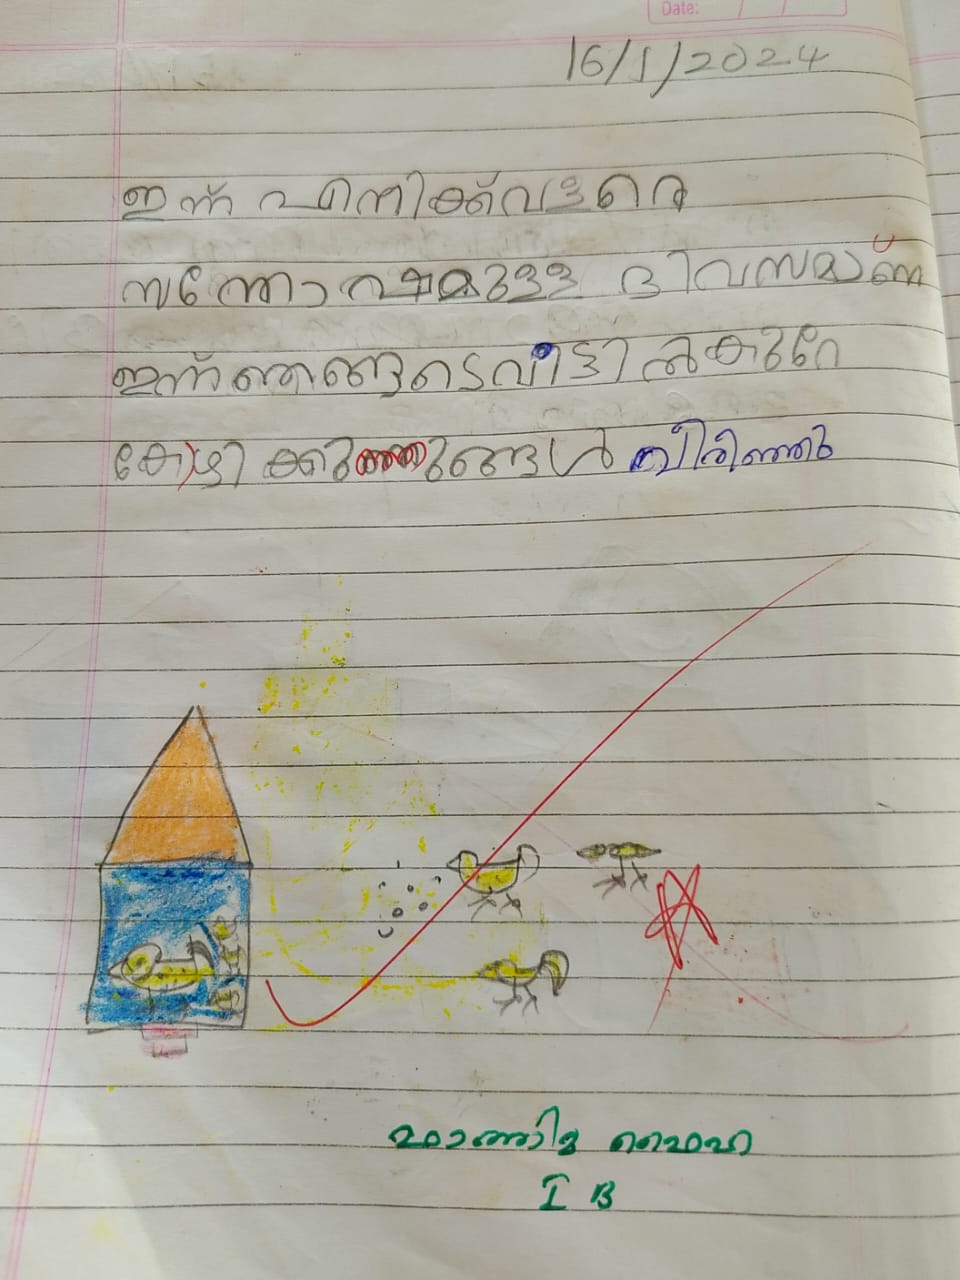 Date: / /
16/1/2024
ഇന്ന് എനിക്ക് വളരെ
സന്തോഷമുള്ള ദിവസമാണ്
ഇന്ന് ഞങ്ങളുടെ വീട്ടിൽ കുറേ
കോഴി ക്കുഞ്ഞുങ്ങൾ വിരിഞ്ഞു
ഫാത്തിമ
I B